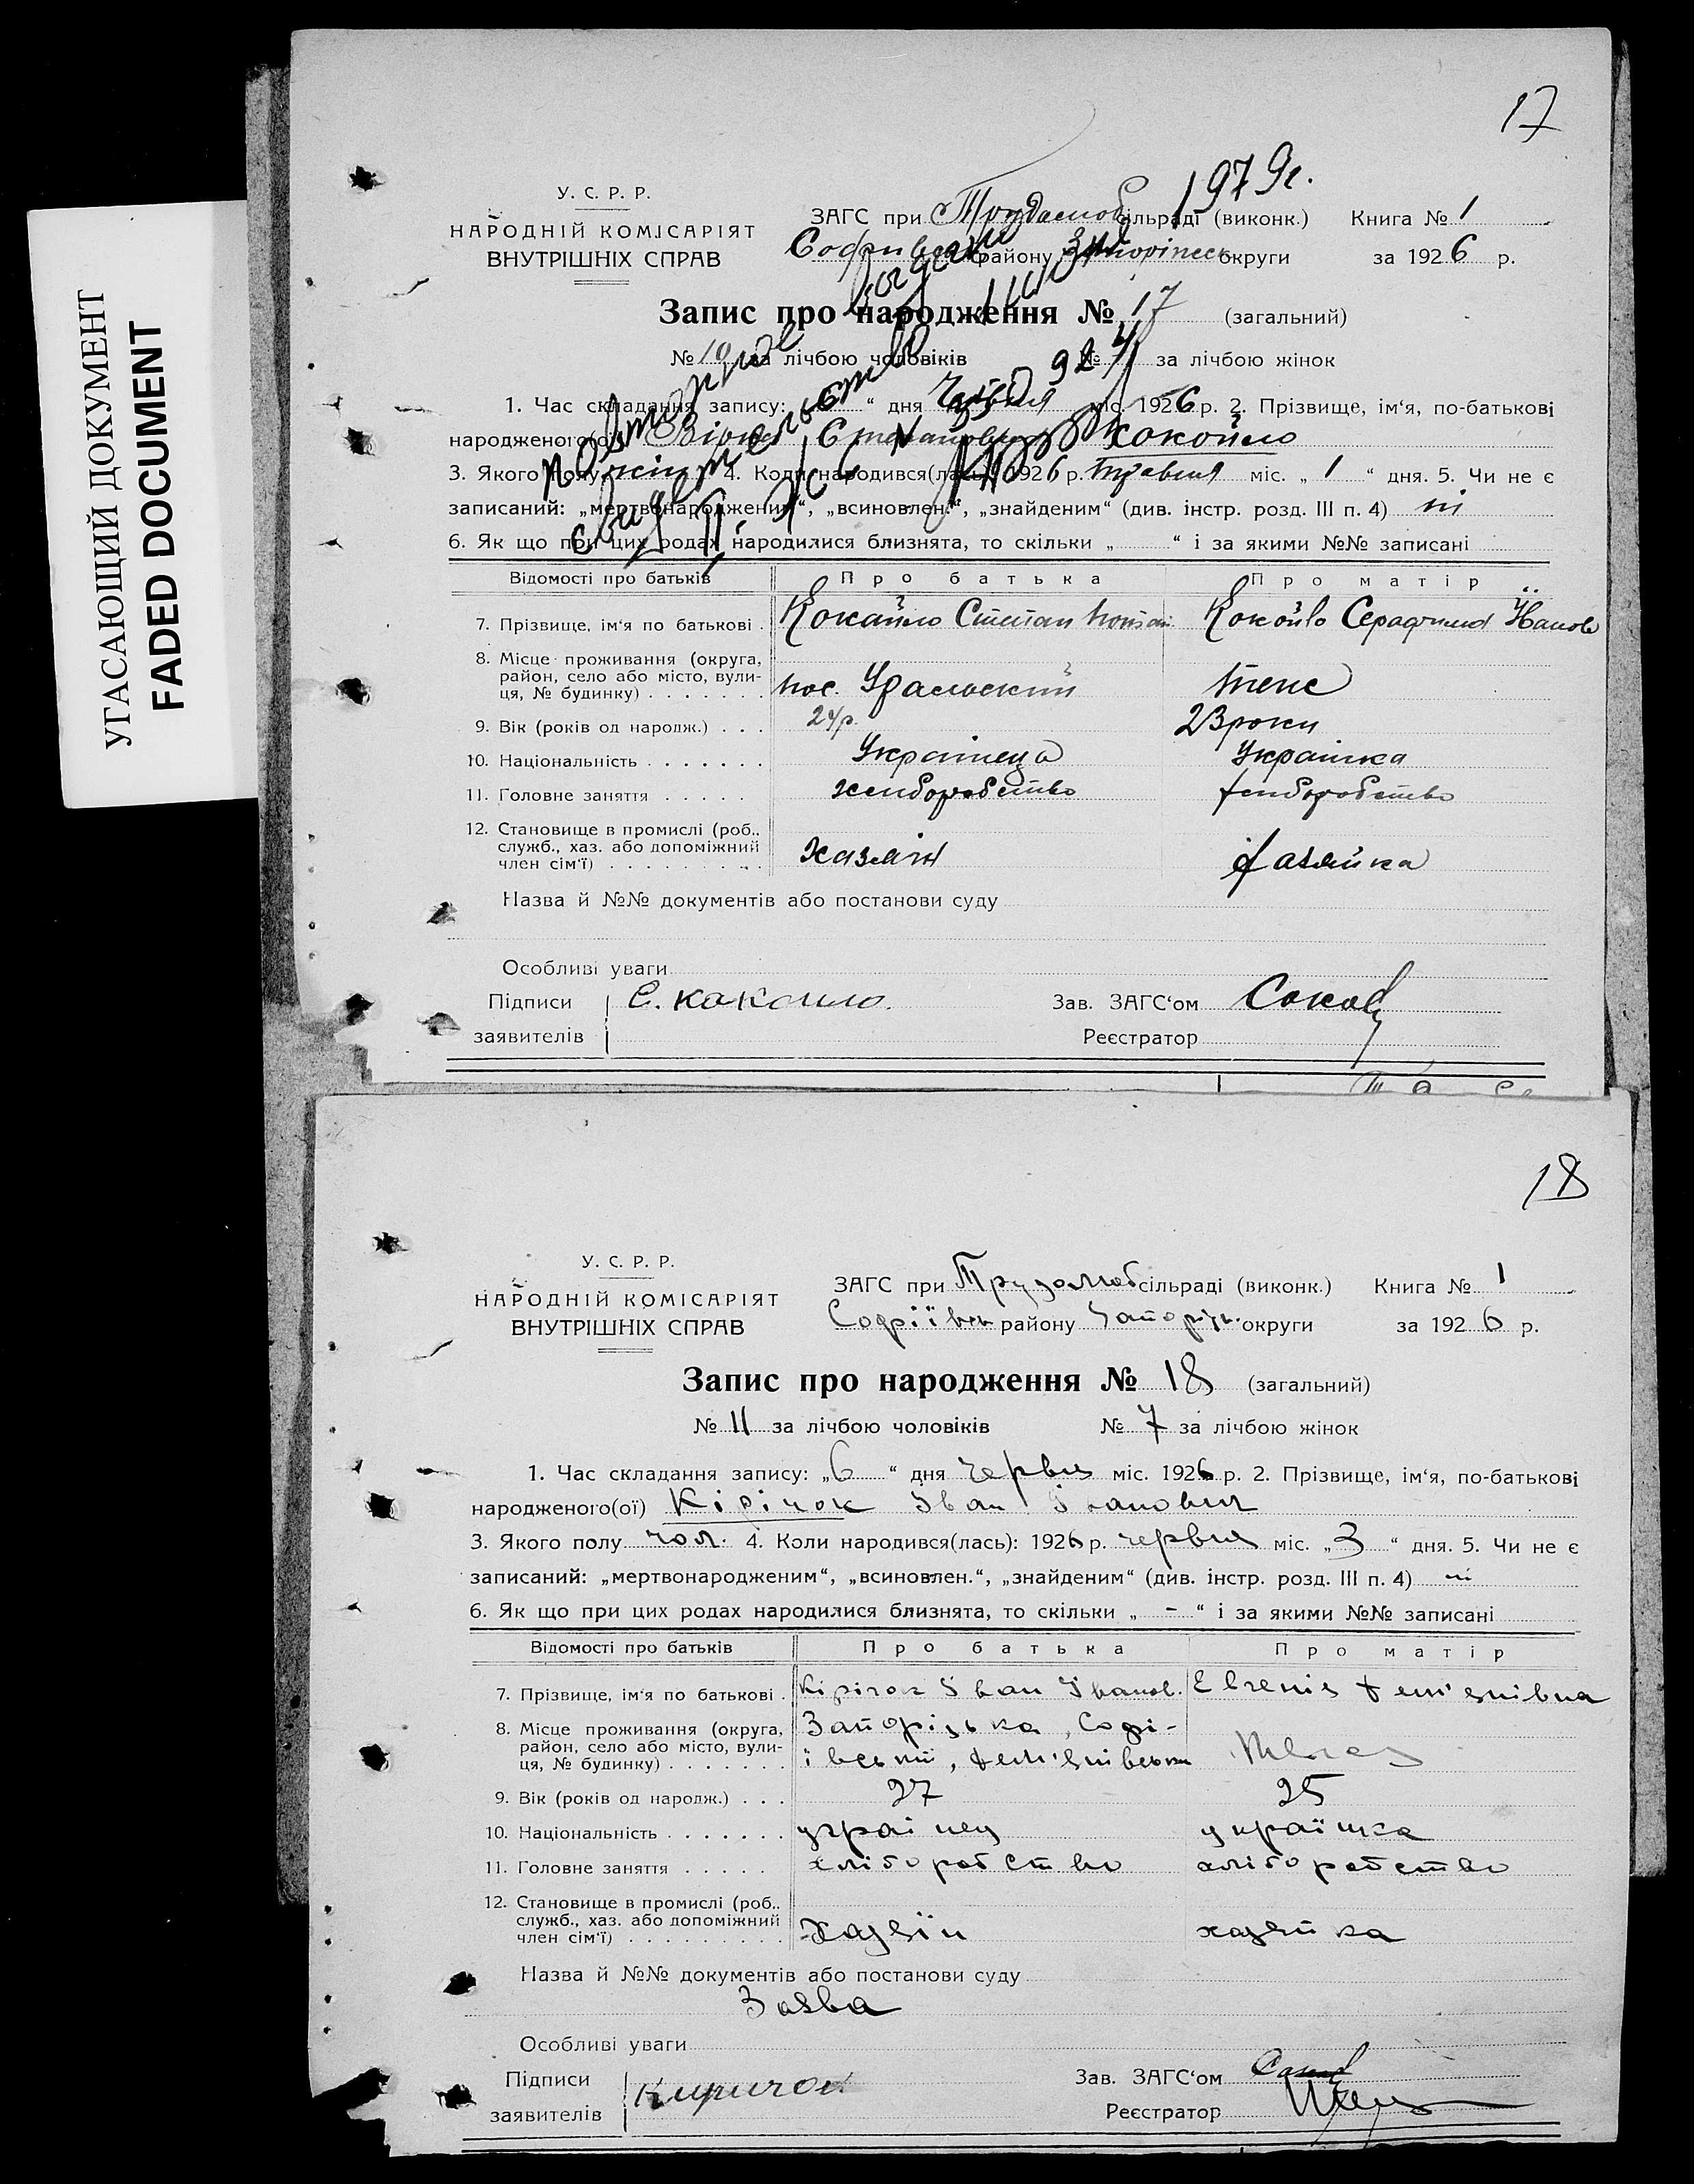 УГАСАЮЩИЙ ДОКУМЕНТ
FADED DOCUMENT
17
1979г.
У. С. Р. Р.
НАРОДНІЙ КОМІСАРІЯТ
ВНУТРІШНІХ СПРАВ
ЗАГС при сільраді (виконк.) Книга № 1
району округи за 1926 р.
Запис про народження № 17 (загальний)
№ 10 за лічбою чоловіків № за лічбою жінок
1. Час складання запису: „6“ дня Червня міс. 1926 р. 2. Прізвище, ім‘я, по-батькові
народженого(ої) Кокойло
3. Якого полу жін 4. Коли народився(лась): 1926 р. травня міс. „1“ дня. 5. Чи не є
записаний: „мертвонародженим“, „всиновлен.“, „знайденим“ (див. інстр. розд. III п. 4) ні
6. Як що при цих родах народилися близнята, то скільки „ “ і за якими №№ записані
повторное
свидетельство
Відомості про батьків Про батька Про матір
7. Прізвище, ім‘я по батькові . Кокайло Степан Кокойло Серафима Иванов
8. Місце проживання (округа,
район, село або місто, вули-
ця, № будинку) . . . . . . . пос. Уральский теже
9. Вік (років од народж.) . . . 24р. 23 роки
10. Національність . . . . . . . Українець Українка
11. Головне заняття . . . . хліборобство хліборобство
12. Становище в промислі (роб..
служб., хаз. або допоміжний
член сім‘ї) . . . . . . . . . хазяін хазяйка
Назва й №№ документів або постанови суду
Особливі уваги
Підписи С. Кокойло. Зав. ЗАГС‘ом
заявителів Реєстратор
18
У. С. Р. Р.
НАРОДНІЙ КОМІСАРІЯТ
ВНУТРІШНІХ СПРАВ
ЗАГС при Трудолюб сільраді (виконк.) Книга № 1
Софіївськ району Запоріз. округи за 1926 р.
Запис про народження № 18 (загальний)
№ 11 за лічбою чоловіків № 7 за лічбою жінок
1. Час складання запису: „6“ дня червня міс. 1926 р. 2. Прізвище, ім‘я, по-батькові
народженого(ої) Кірічок Іван Іванович
3. Якого полу чол. 4. Коли народився(лась): 1926 р. червня міс. „3“ дня. 5. Чи не є
записаний: „мертвонародженим“, „всиновлен.“, „знайденим“ (див. інстр. розд. III п. 4) ні
6. Як що при цих родах народилися близнята, то скільки „ - “ і за якими №№ записані
Відомості про батьків Про батька Про матір
7. Прізвище, ім‘я по батькові . Кірічок Іван Іванов. Евгенія Дем'янівна
8. Місце проживання (округа, Запорізька, Софі-
район, село або місто, вули- ївський, Дем'янівська
ця, № будинку) . . . . . . .
9. Вік (років од народж.) . . . 27 25
10. Національність . . . . . . . українец українка
11. Головне заняття . . . . . хліборобство хліборобство
12. Становище в промислі (роб..
служб., хаз. або допоміжний
член сім‘ї) . . . . . . . . . Хазяїн хазяйка
Назва й №№ документів або постанови суду
Заява
Особливі уваги
Підписи Киричок Зав. ЗАГС‘ом
заявителів Реєстратор